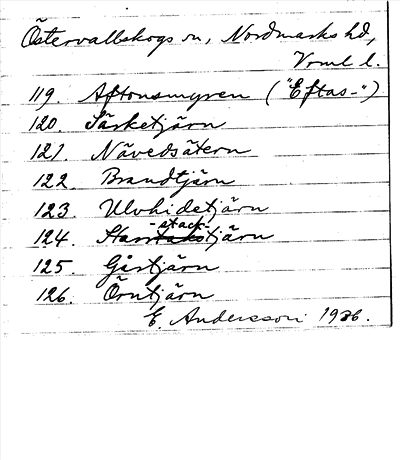 Östervallskogs sn, Nordmarks hd,
Vrml l.
119. Aftonsmyren ("Eftas-")
120. Särketjärn
121. Nävedsätern
122. Brandtjärn
123. Ulvhidetjärn
-stack-
124. tjärn
125. Gåstjärn
126. Örntjärn
E. Andersson 1936.